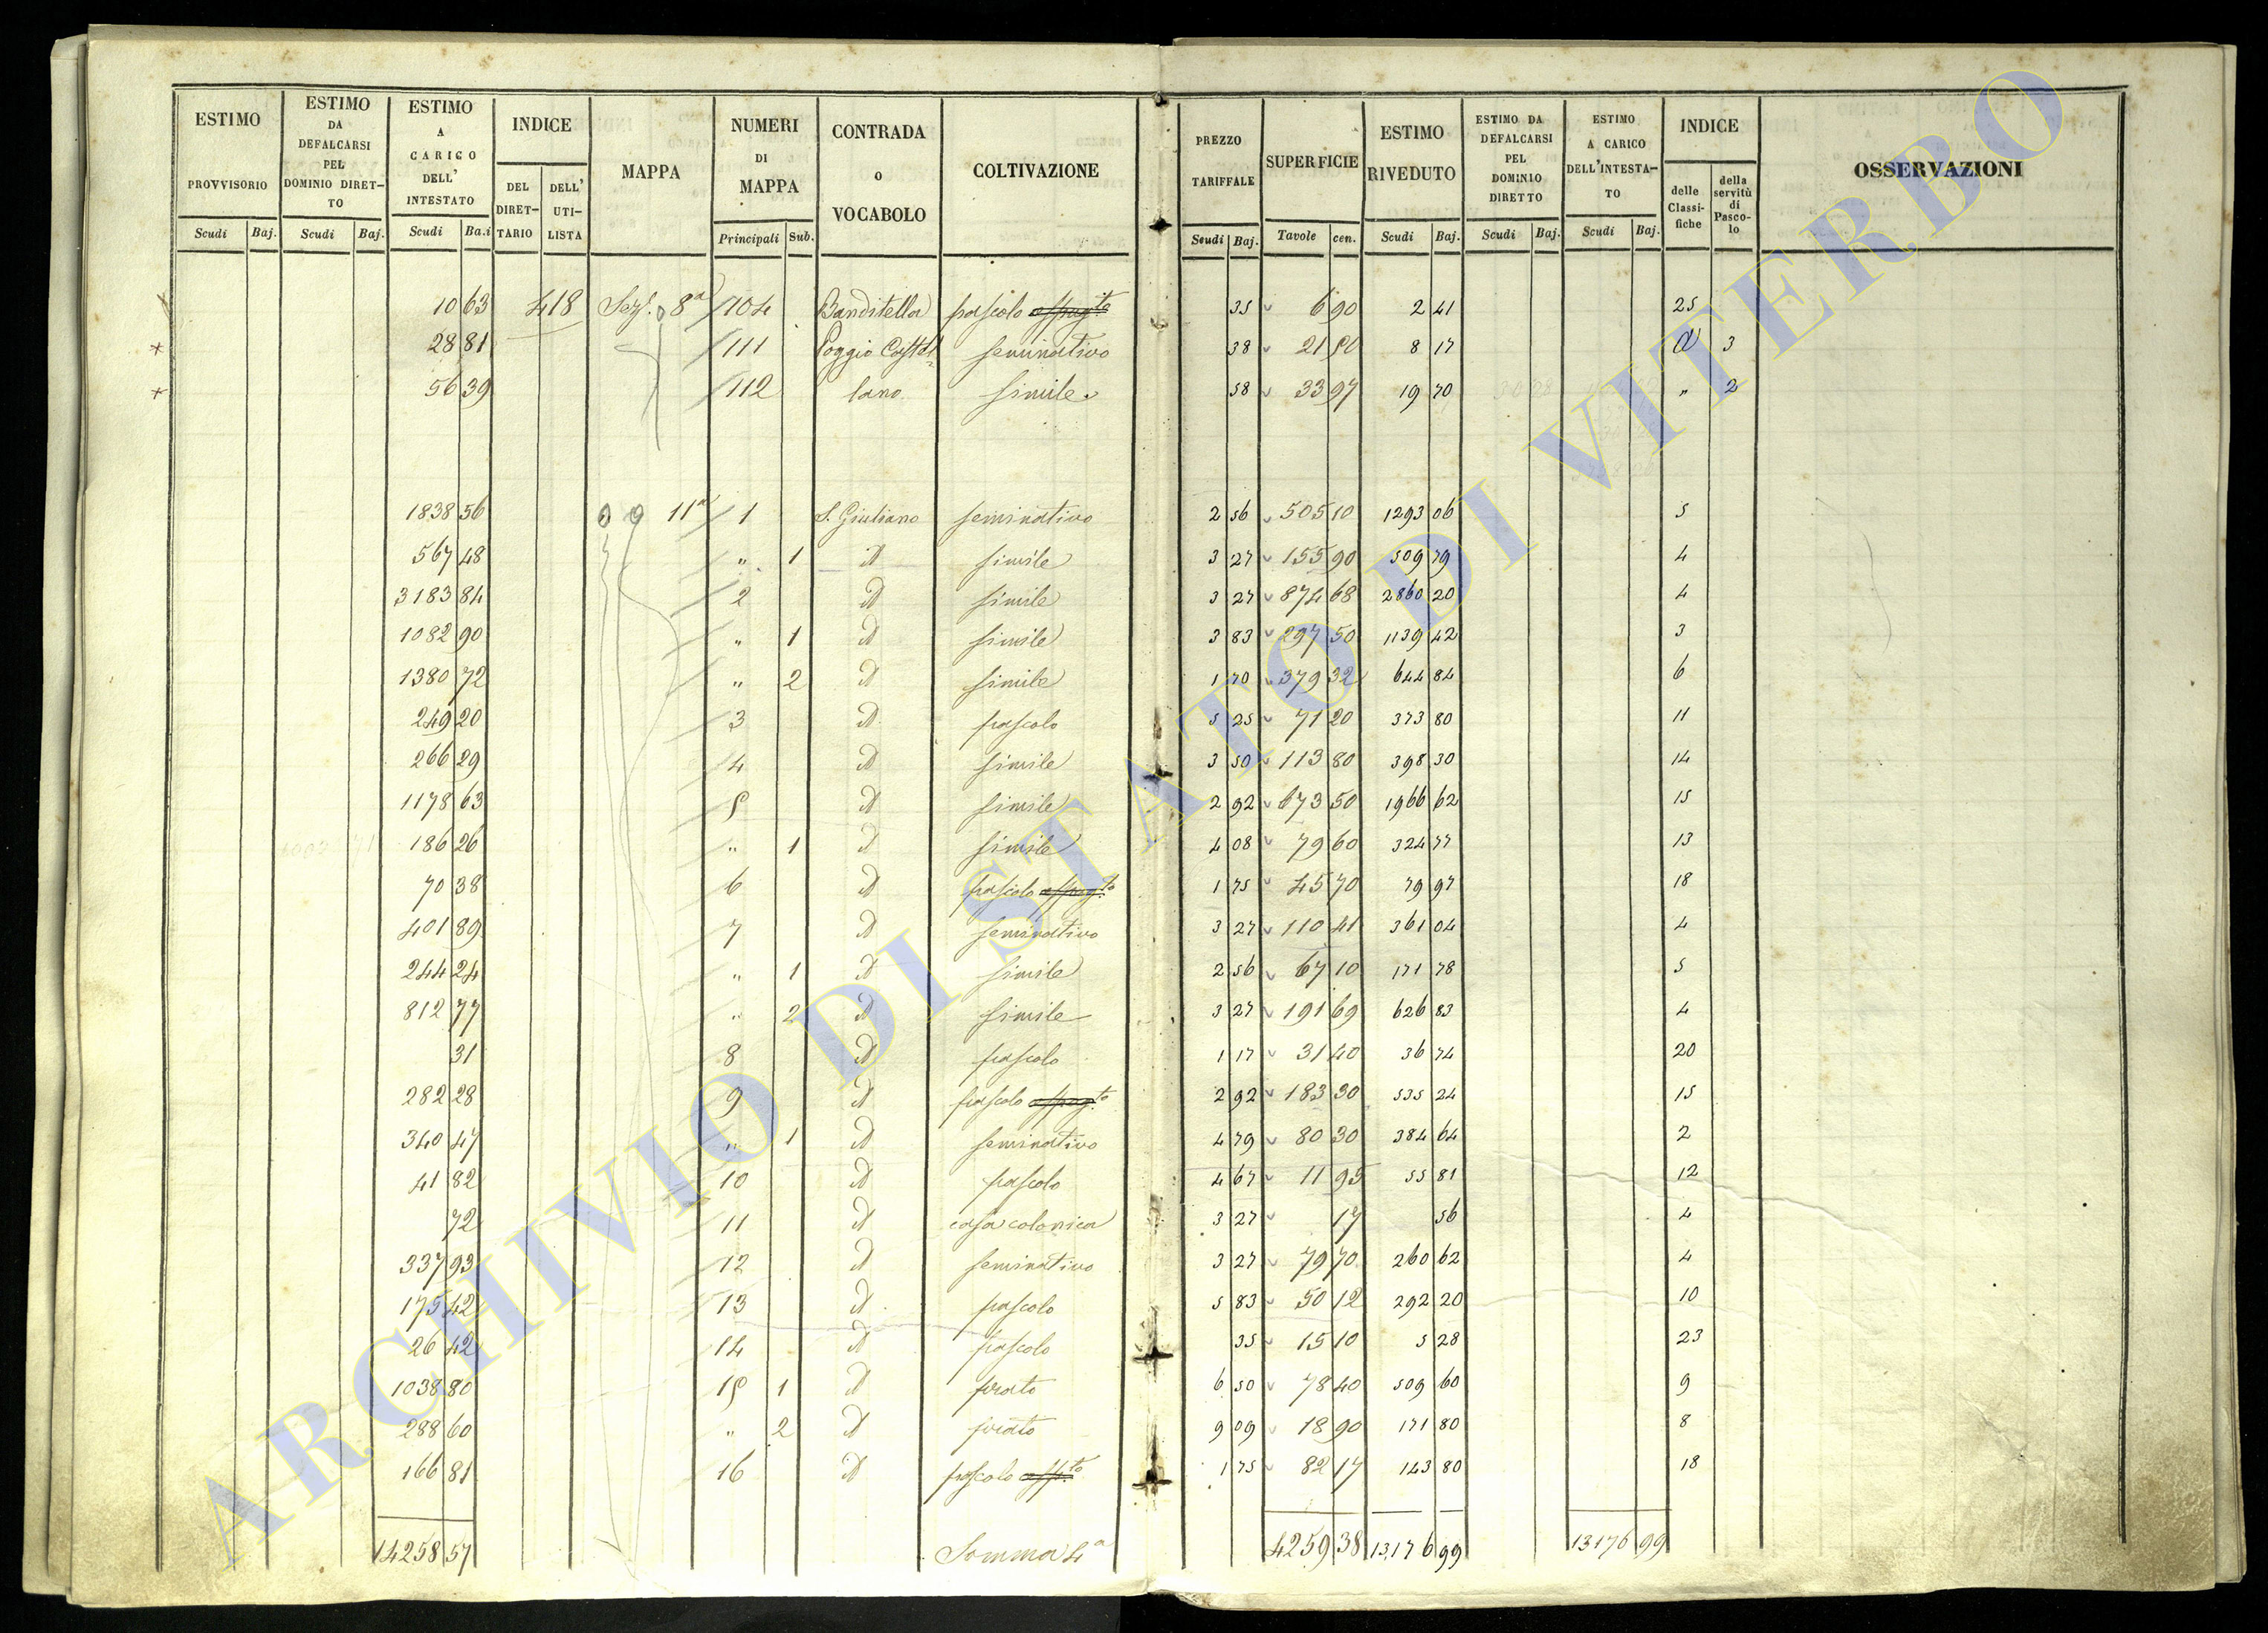 ESTIMO PROVVISORIO Scudi Baj.
ESTIMO DA DEFALCARSI PEL DOMINIO DIRET-TO Scudi Baj.
ESTIMO A CARICO DELL' INTESTATO Scudi Ba.i
INDICE DEL DIRET-TARIO DELL' UTI-LISTA
MAPPA
NUMERI DI MAPPA Principali Sub.
CONTRADA o VOCABOLO
COLTIVAZIONE
PREZZO TARIFFALE Scudi Baj.
SUPERFICIE Tavole cen.
ESTIMO RIVEDUTO Scudi Baj.
ESTIMO DA DEFALCARSI PEL DOMINIO DIRETTO Scudi Baj.
ESTIMO A CARICO DELL'INTESTA-TO Scudi Baj.
INDICE delle Classi-fiche della servitù di Pasco-lo
OSSERVAZIONI
10 63 418 Sez. 8a 104 Banditella pascolo 35 6 90 2 41 25
28 81 111 Poggio Castel seminativo 38 21 50 8 17 d 3
56 39 112 lano simile 58 33 97 19 70 " 2
1838 56 11a 1 S. Giuliano seminativo 2 56 505 10 1293 06 5
567 48 " 1 d simile 3 27 155 90 509 79 4
3183 84 2 d simile 3 27 874 68 2860 20 4
1082 90 " 1 d simile 3 83 297 50 1139 42 3
1380 72 " 2 d simile 1 70 379 32 644 84 6
249 20 3 d pascolo 5 25 71 20 373 80 11
266 29 4 d simile 3 50 113 80 398 30 14
1178 63 5 d simile 2 92 673 50 1966 62 15
186 26 " 1 d simile 4 08 79 60 324 77 13
70 38 6 d pascolo 1 75 45 70 79 97 18
401 89 7 d seminativo 3 27 110 41 361 04 4
244 24 " 1 d simile 2 56 67 10 171 78 5
812 77 " 2 d simile 3 27 191 69 626 83 4
31 8 d pascolo 1 17 31 40 36 74 20
282 28 9 d pascolo 2 92 183 30 535 24 15
340 47 " 1 d seminativo 4 79 80 30 384 64 2
41 82 10 d pascolo 4 67 11 95 55 81 12
72 11 d casa colonica 3 27 17 56 4
337 93 12 d seminativo 3 27 79 70 260 62 4
175 42 13 d pascolo 5 83 50 12 292 20 10
26 42 14 d pascolo 35 15 10 5 28 23
1038 80 15 1 d prato 6 50 78 40 509 60 9
288 60 " 2 d prato 9 09 18 90 171 80 8
166 81 16 d pascolo 1 75 82 17 143 80 18
14258 57 Somma 4a 4259 38 13176 99 13176 99
ARCHIVIO DI STATO DI VITERBO